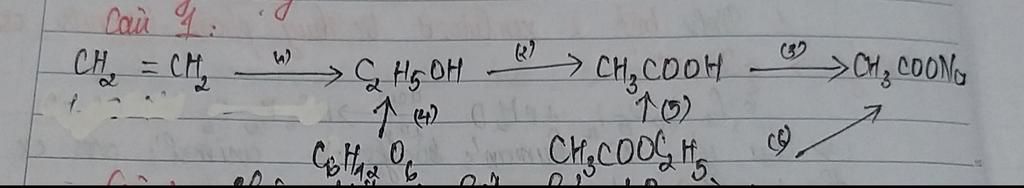 Câu 1:
CH2 = CH2 (1)→ C2H5OH (2)→ CH3COOH (3)→ CH3COONa
↑ (4) ↑ (5)
C6H12O6 CH3COOC2H5 (6) ↗